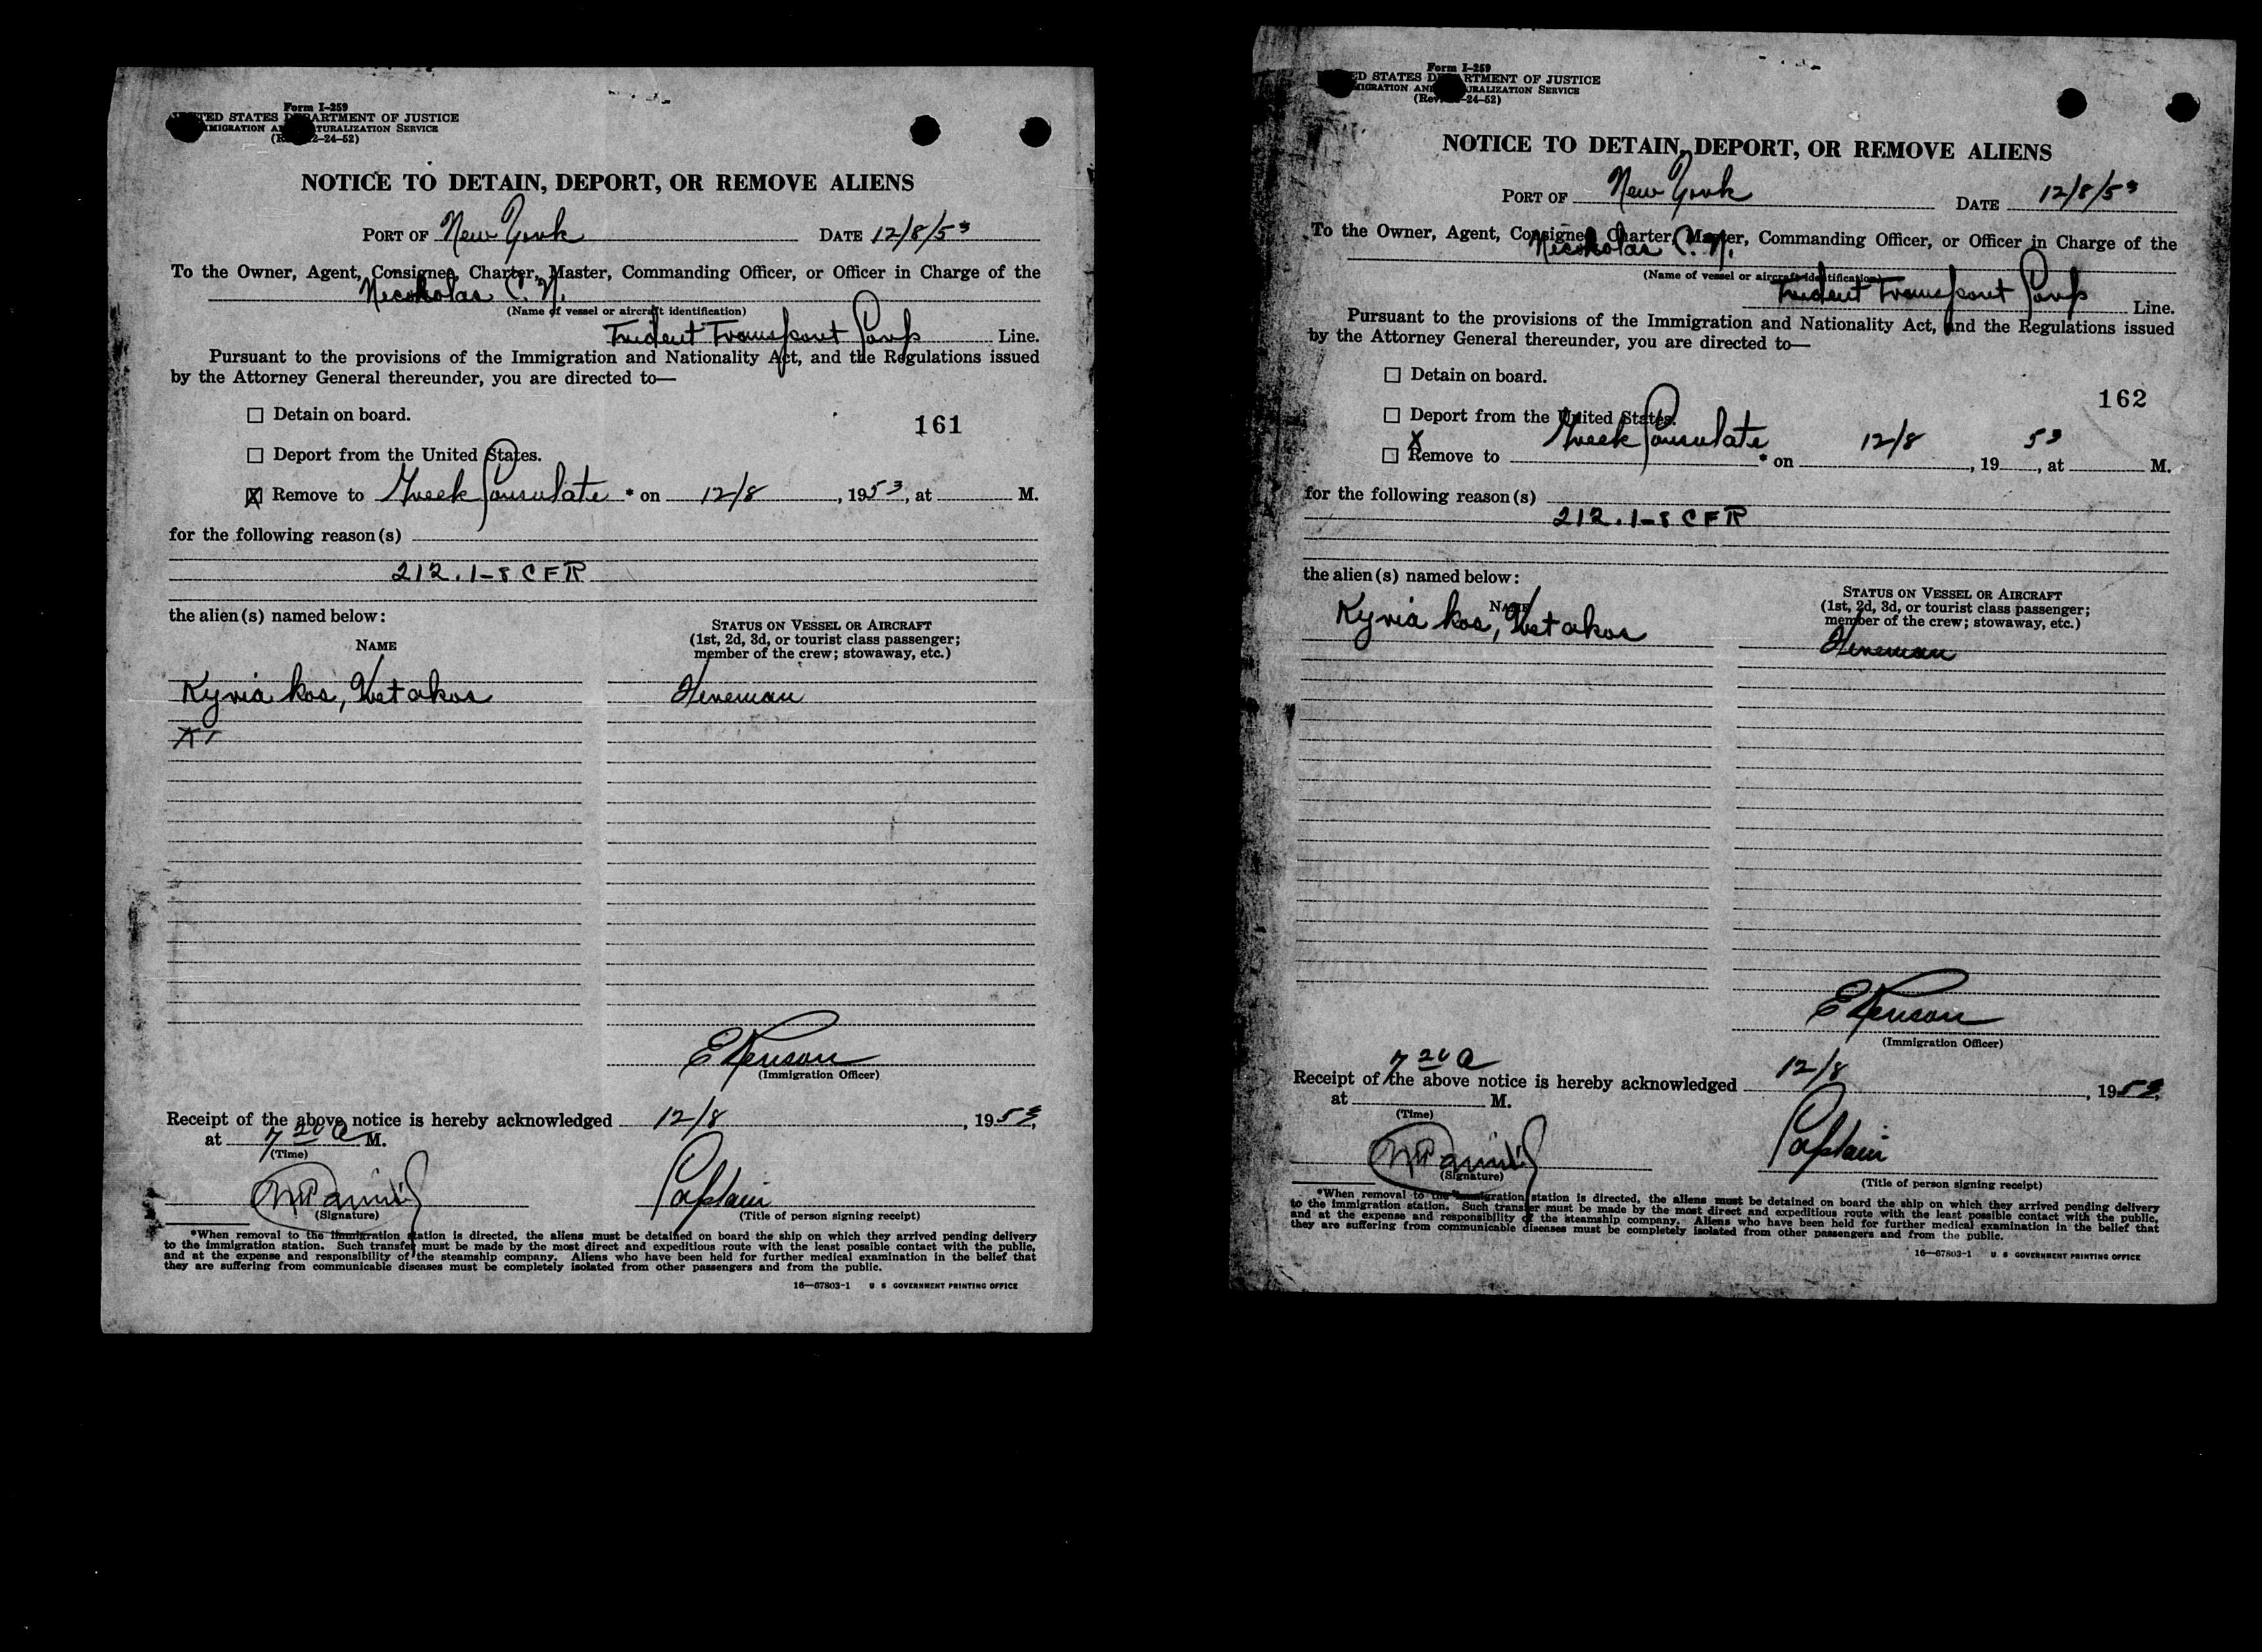 Form I-259
UNITED STATES DEPARTMENT OF JUSTICE
IMMIGRATION AND NATURALIZATION SERVICE
2-24-52)
NOTICE TO DETAIN, DEPORT, OR REMOVE ALIENS
PORT OF New York DATE 12/8/53
To the Owner, Agent, Consignee, Charter, Master, Commanding Officer, or Officer in Charge of the
Nicholas C. H.
(Name of vessel or aircraft identification)
Trident Transport Corp Line.
Pursuant to the provisions of the Immigration and Nationality Act, and the Regulations issued
by the Attorney General thereunder, you are directed to—
☐ Detain on board.
161
☐ Deport from the United States.
☒ Remove to Greek Consulate * on 12/8, 1953, at M.
for the following reason(s)
212.1-8 CFR
the alien(s) named below:
NAME
STATUS ON VESSEL OR AIRCRAFT
(1st, 2d, 3d, or tourist class passenger;
member of the crew; stowaway, etc.)
Kyriakos, Fireman
(Immigration Officer)
Receipt of the above notice is hereby acknowledged 12/8, 1953,
at 7 20 A M.
(Time)
Captain
(Signature) (Title of person signing receipt)
*When removal to the immigration station is directed, the aliens must be detained on board the ship on which they arrived pending delivery
to the immigration station. Such transfer must be made by the most direct and expeditious route with the least possible contact with the public,
and at the expense and responsibility of the steamship company. Aliens who have been held for further medical examination in the belief that
they are suffering from communicable diseases must be completely isolated from other passengers and from the public.
16—67803-1 U. S. GOVERNMENT PRINTING OFFICE
Form I-259
UNITED STATES DEPARTMENT OF JUSTICE
IMMIGRATION AND NATURALIZATION SERVICE
(Rev. -24-52)
NOTICE TO DETAIN, DEPORT, OR REMOVE ALIENS
PORT OF New York DATE 12/8/53
To the Owner, Agent, Consignee, Charter, Master, Commanding Officer, or Officer in Charge of the
Nicholas C. H.
(Name of vessel or aircraft identification)
Trident Transport Corp Line.
Pursuant to the provisions of the Immigration and Nationality Act, and the Regulations issued
by the Attorney General thereunder, you are directed to—
☐ Detain on board.
162
☐ Deport from the United States.
X
☐ Remove to Greek Consulate * on 12/8, 1953, at M.
for the following reason(s)
212.1-8 CFR
the alien(s) named below:
NAME
STATUS ON VESSEL OR AIRCRAFT
(1st, 2d, 3d, or tourist class passenger;
member of the crew; stowaway, etc.)
Kyriakos, Fireman
(Immigration Officer)
7 20 A
Receipt of the above notice is hereby acknowledged 12/8, 1953,
at M.
(Time)
Captain
(Signature) (Title of person signing receipt)
*When removal to the immigration station is directed, the aliens must be detained on board the ship on which they arrived pending delivery
to the immigration station. Such transfer must be made by the most direct and expeditious route with the least possible contact with the public,
and at the expense and responsibility of the steamship company. Aliens who have been held for further medical examination in the belief that
they are suffering from communicable diseases must be completely isolated from other passengers and from the public.
16—67803-1 U. S. GOVERNMENT PRINTING OFFICE